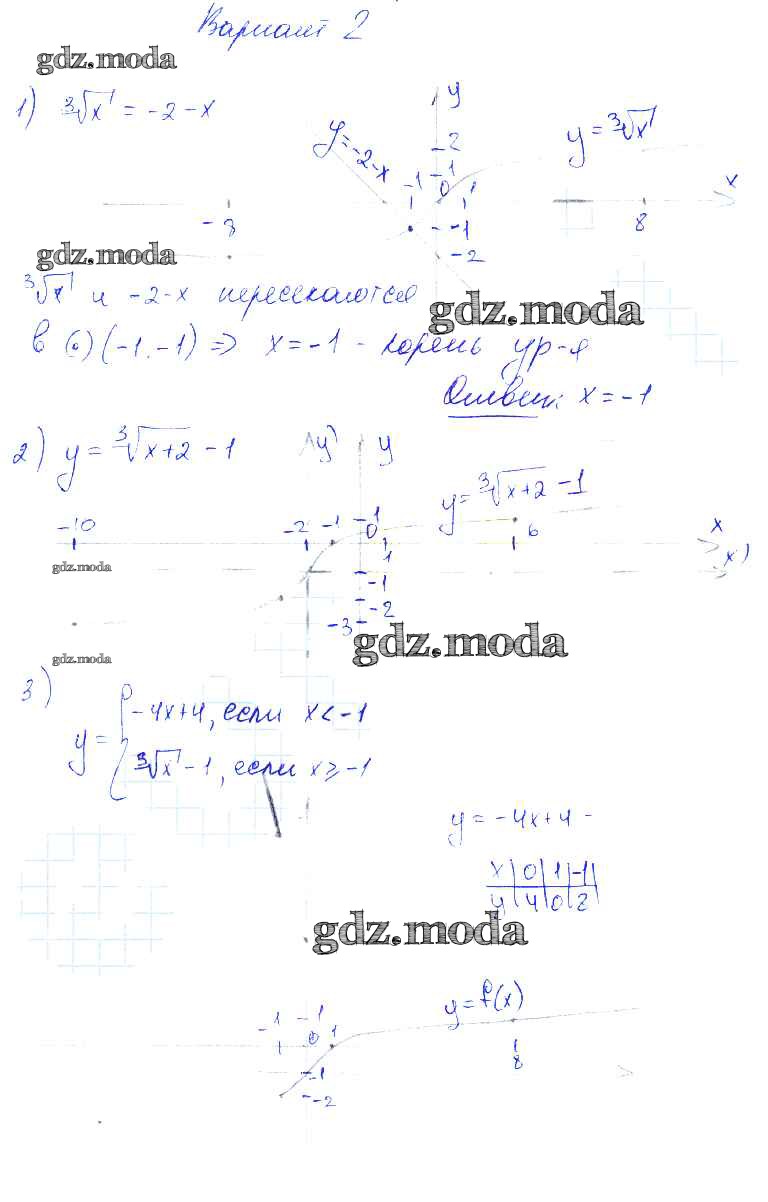 Вариант 2
gdz.moda
1) ∛x = -2-x
y
y=-2-x
y = ∛x
-2
-1 -1 0 1
x
-8 -1 8
-2
gdz.moda
∛x и -2-x пересекаются
gdz.moda
в (•) (-1,-1) => x = -1 - корень ур-я
Ответ: x = -1
2) y = ∛x+2 -1
y' y
y = ∛x+2 -1
-10 -2 -1 -1 0 6 x
1 x'
gdz.moda
-1
-2
-3
gdz.moda
gdz.moda
3)
y = { -4x+4, если x < -1
∛x -1, если x ≥ -1
y = -4x+4 -
x | 0 | 1 | -1
y | 4 | 0 | 2
gdz.moda
y = f(x)
-1 -1 0 1
8
-1
-2